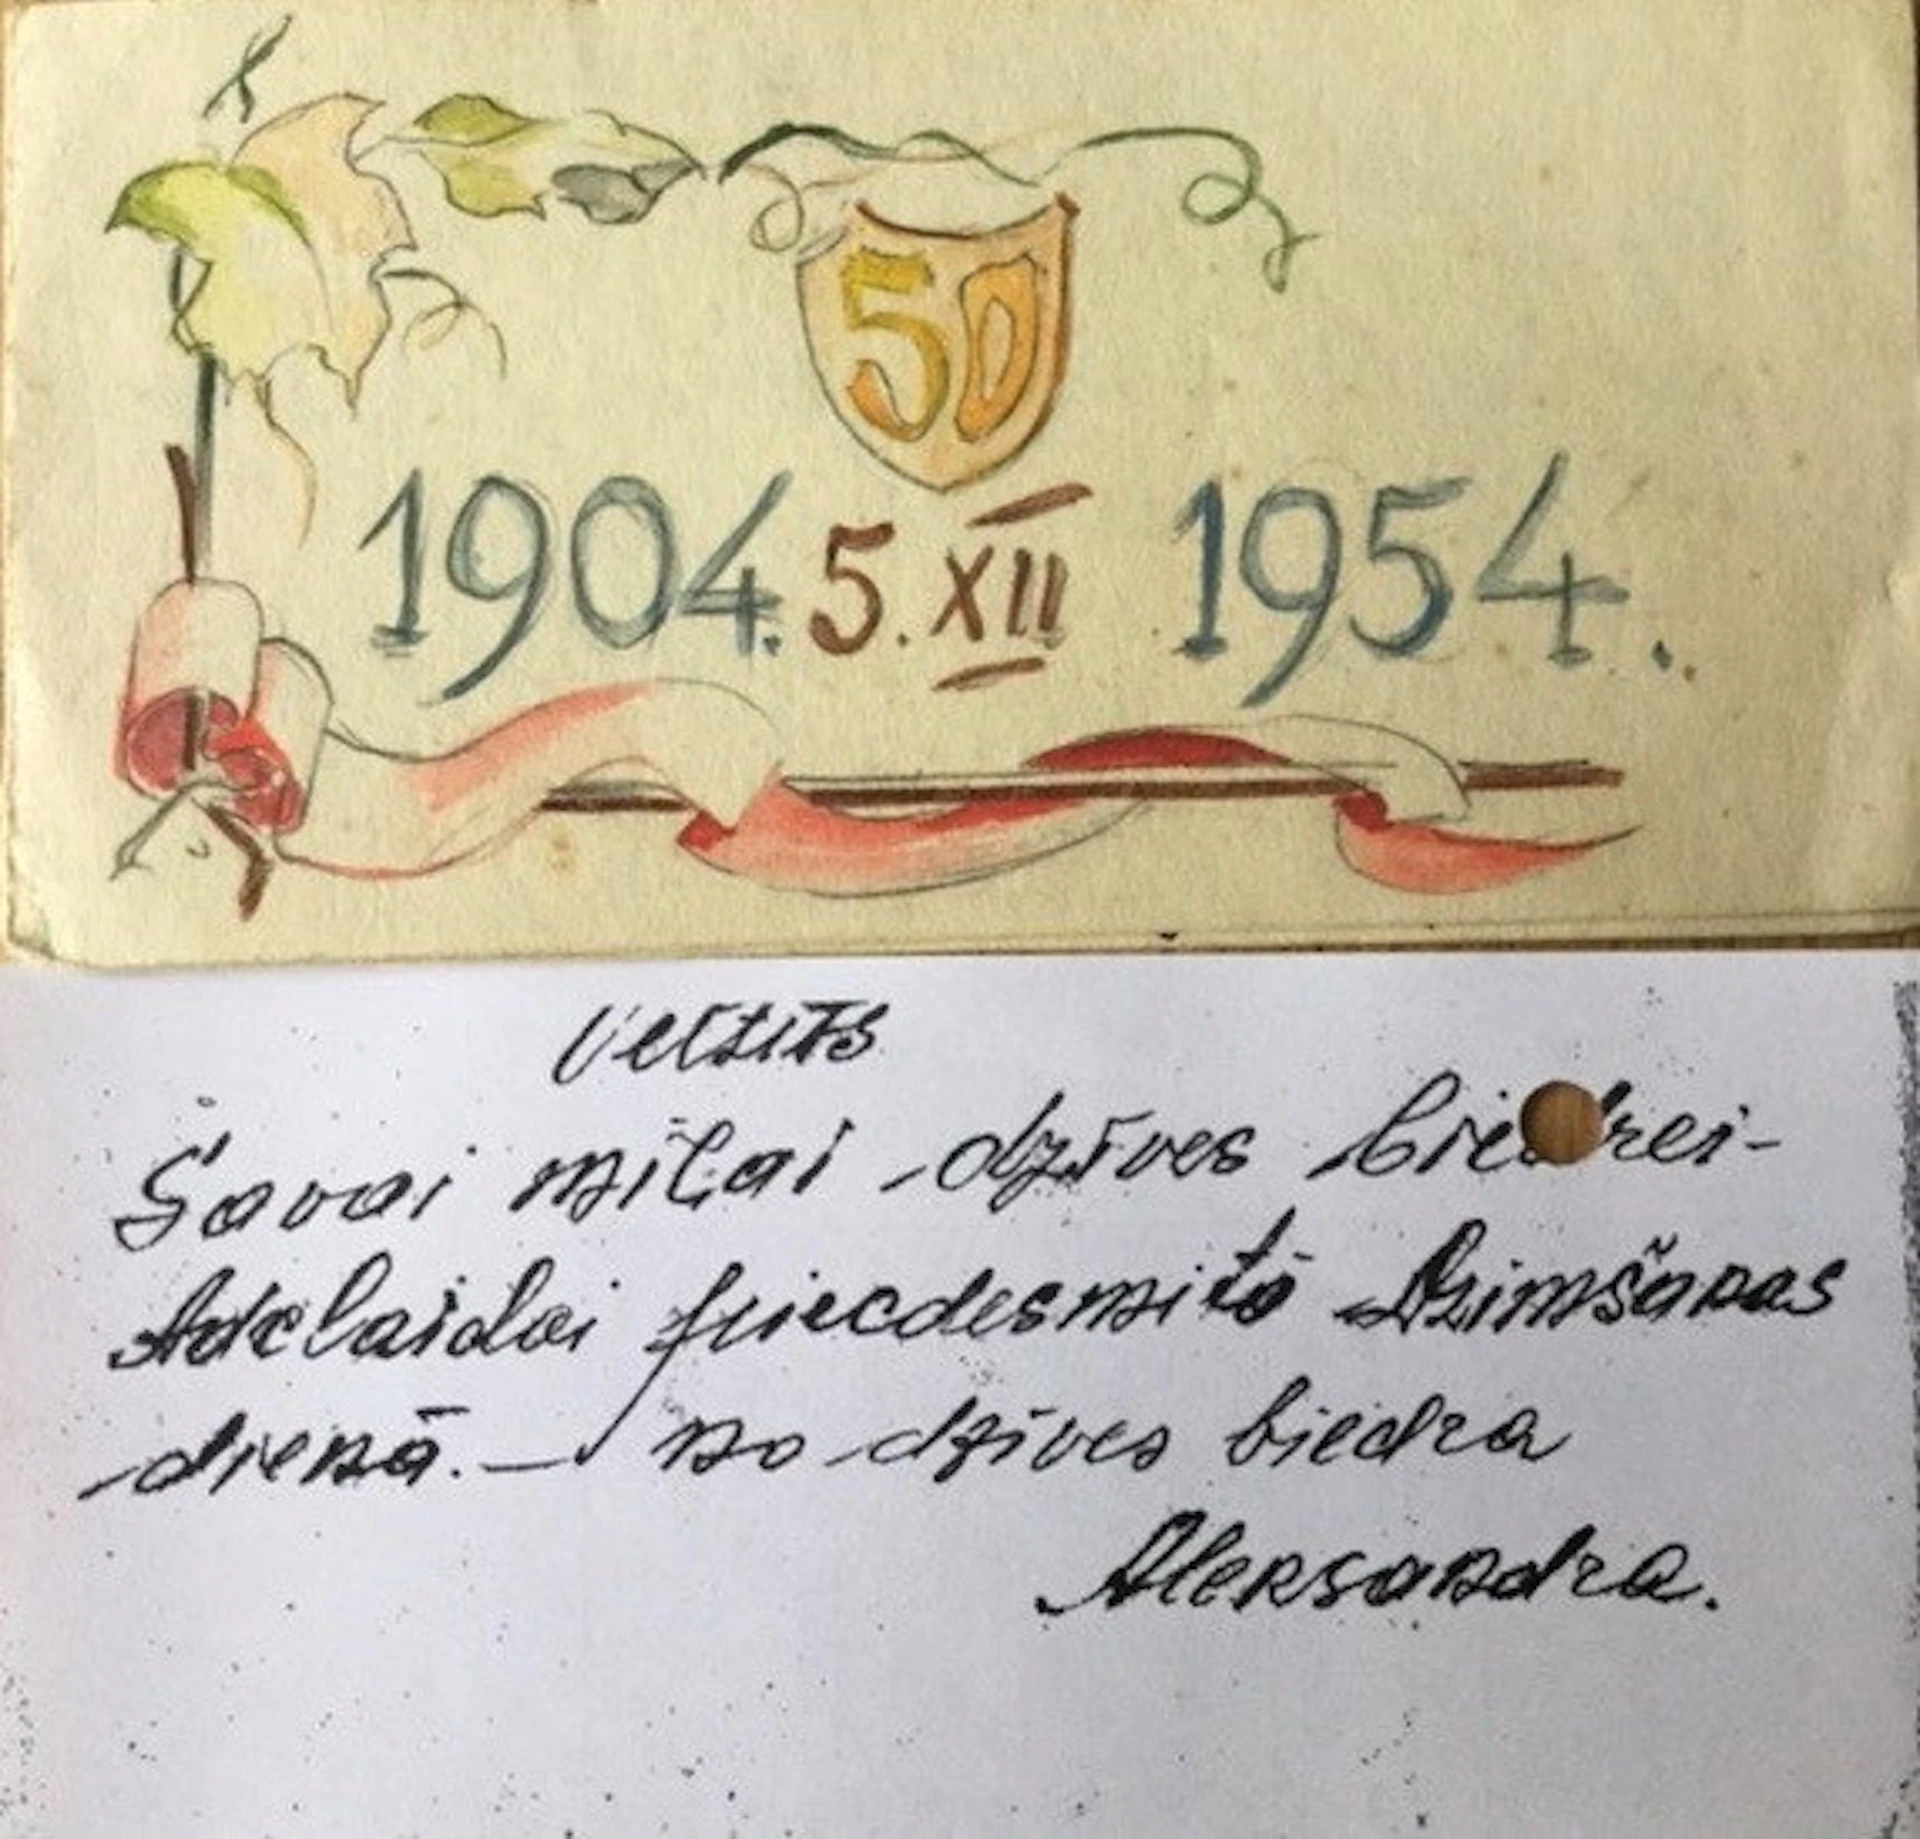 50
1904. 5. XII 1954.
Veltīts
Savai mīļai dzīves biedrei-
Adelaidai piecdesmitā Dzimšanas
dienā. — no dzīves biedra
Aleksandra.